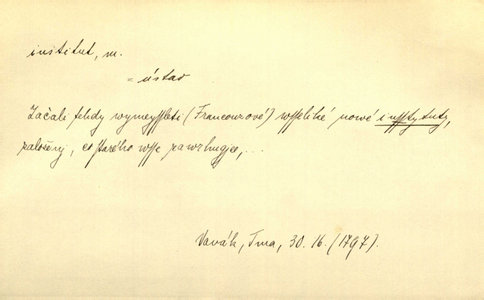 institut, m.
= ústav
Začali tehdy wymeyssleti (Francouzové) wsseliké nové insstytuty,
založený, co starého wsse zawrhugjc, ...
Vavák, Tma, 30. 16. (1797).